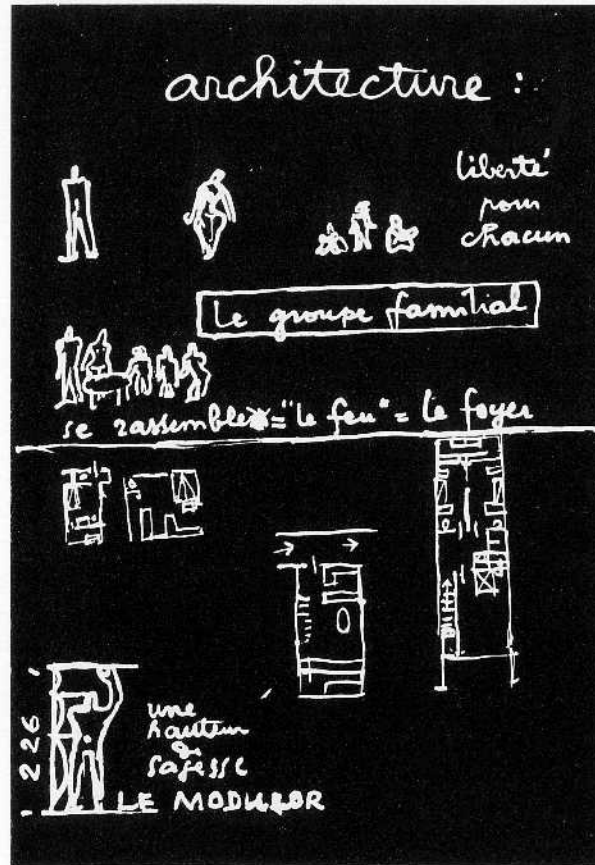 architecture :
liberté
pour
chacun
Le groupe familial
se rassemble = "le feu" = le foyer
226
une
hauteur
de
sagesse
LE MODULOR